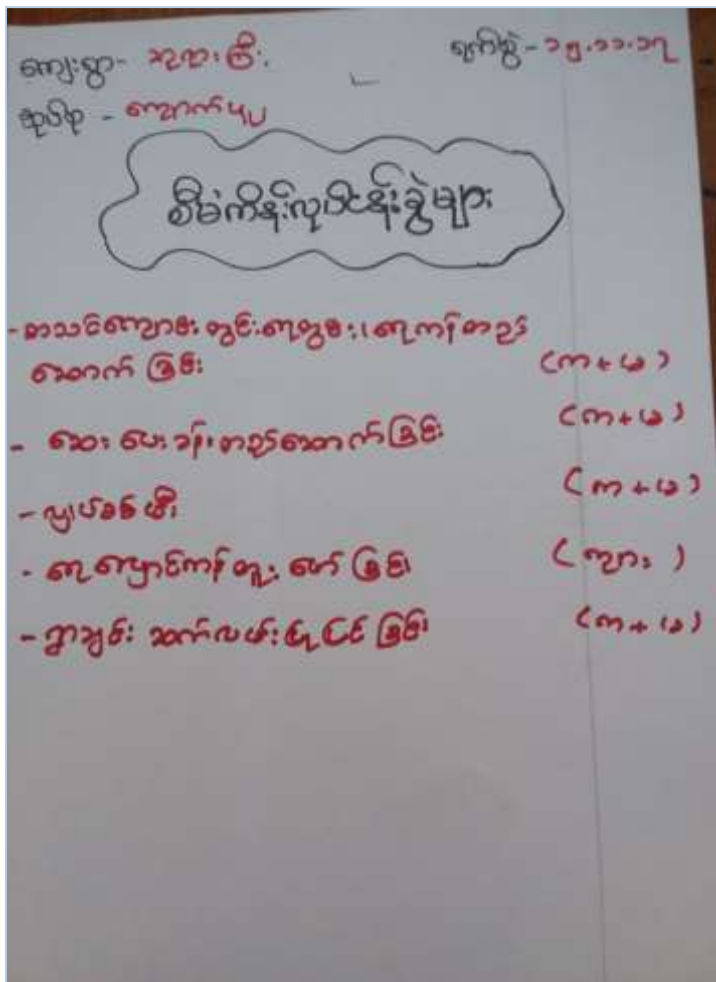 ကျေးရွာ- သူဌေးကြီး ရက်စွဲ - ၁၅.၁၁.၁၇
အုပ်စု - ကျောက်ပုပ
စီမံကိန်းလုပ်ငန်းခွဲများ
- စာသင်ကျောင်း တွင်းရေတွင်း၊ ရေကန် တည်
ဆောက် ခြင်း (ကျ + မ)
- ဆေး ပေး ခန်း တည်ဆောက် ခြင်း (ကျ + မ)
- လျှပ်စစ် မီး (ကျ + မ)
- ရေ လှောင်ကန် တူး ဖော် ခြင်း (ကျား)
- ရွာချင်း ဆက်လမ်း ပြု ပြင် ခြင်း (ကျ + မ)